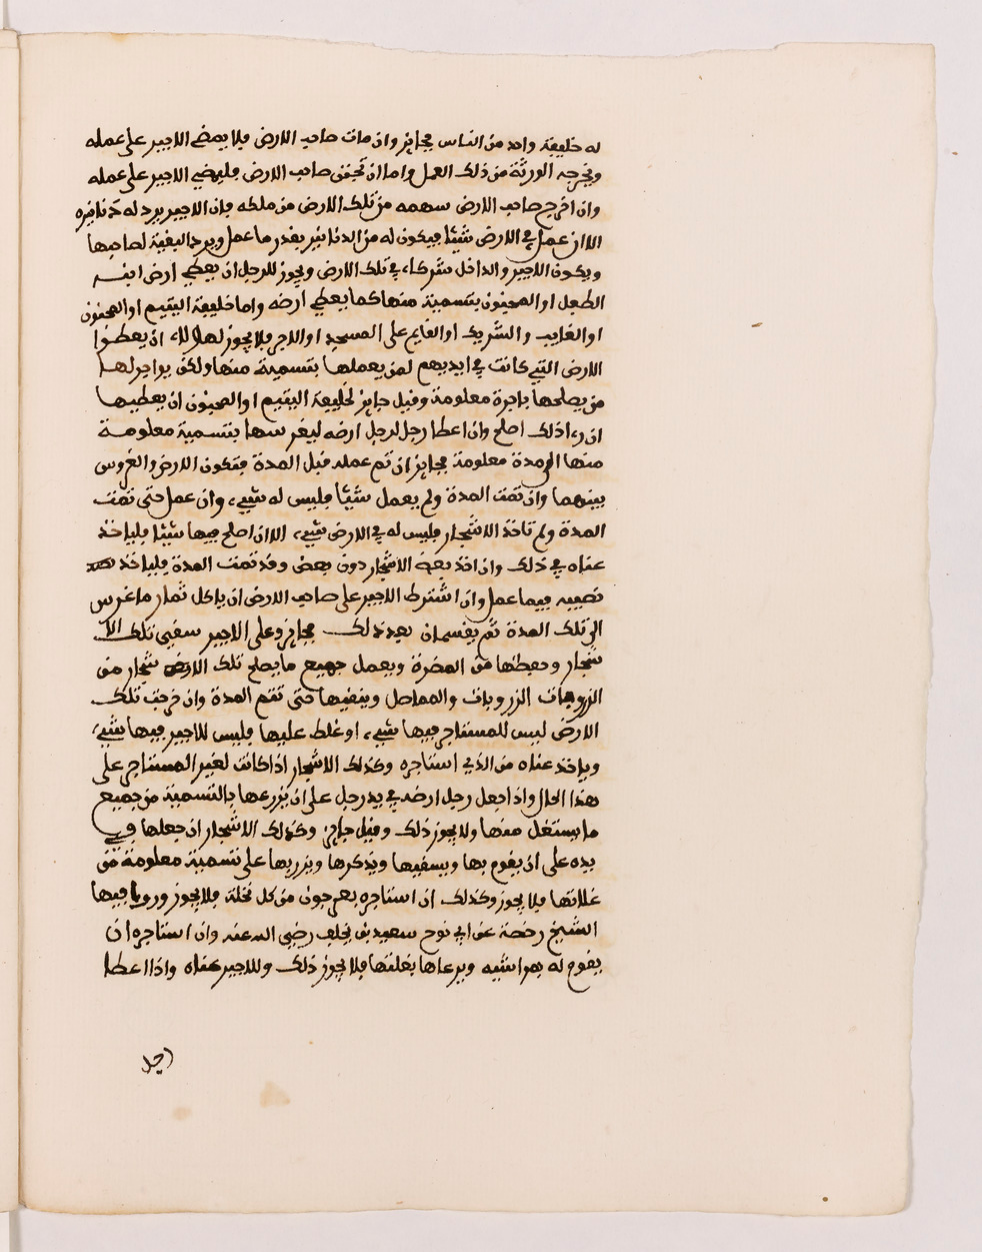 له خليفة واحد من الناس فجايز وان مات صاحب الارض فلا يمضي الاجير على عمله
ويخرجه الورثة من ذلك العمل واما ان تجنن صاحب الارض فليمضي الاجير على عمله
وان اخرج صاحب الارض سهمه من تلك الارض من ملكه فان الاجير يرد له دنانيره
الا ان عمل في الارض شيئا فيكون له من الدنانير بقدر ما عمل ويرد البقية لصاحبها
ويكون الاجير والداخل شركاء في تلك الارض ويجوز للرجل ان يعطي ارض ابنه
الطفل او المجنون بتسمية منها كما يعطي ارضه واما خليفة اليتيم او المجنون
او الغايب والشريك او القايم على المسجد او الاجر فلا يجوز لهاولاء ان يعطوا
الارض التي كانت في ايديهم لمن يعملها بتسمية منها ولكن يواجر لها
من يصلحها باجرة معلومة وقيل جايز لخليفة اليتيم او المجنون ان يعطيها
ان رءا ذلك اصلح وان اعطا رجل لرجل ارضه ليغرسها بتسمية معلومة
منها الى مدة معلومة فجايز ان تم عمله قبل المدة فتكون الارض والغروس
بينهما وان تمت المدة ولم يعمل شيئا فليس له شيء وان عمل حتى تمت
المدة ولم تاخذ الاشجار فليس له في الارض شيء الا ان اصلح فيها شيئا فلياخذ
عناه في ذلك وان اخذ بعض الاشجار دون بعض وقد تمت المدة فلياخذ
نصيبه فيما عمل وان اشترط الاجير على صاحب الارض ان ياكل ثمار ما غرس
الى تلك المدة ثم يقسمان بعد ذلك فجايز وعلى الاجير سقي تلك الا
شجار وحفظها من المضرة ويعمل جميع ما يصلح تلك الاشجار من
الزروبات والمماصل وينقيها حتى تتم المدة وان خرجت تلك
الارض ليس للمستاجر فيها شيء او غلط عليها فليس للاجير فيها شيء
وياخذ عناه من الذي استاجره وكذلك الاشجار اذا كانت لغير المستاجر على
هذا الحال واذا جعل رجل ارضه في يد رجل على ان يزرعها بالتسمية من جميع
ما يستغل منها ولا يجوز ذلك وقيل جايز وكذلك الاشجار ان جعلها في
يده على ان يقوم بها ويسقيها ويذكرها ويزربها على تسمية معلومة من
غلاتها فلا يجوز وكذلك ان استاجره بعرجون من كل نخلة فلا يجوز وروى فيها
الشيخ رخصة عن ابي نوح سعيد بن يخلف رضي الله عنه وان استاجره ان
يقوم له بمواشيه ويرعاها بغلتها فلا يجوز ذلك وللاجير عناه واذا اعطا
رجل